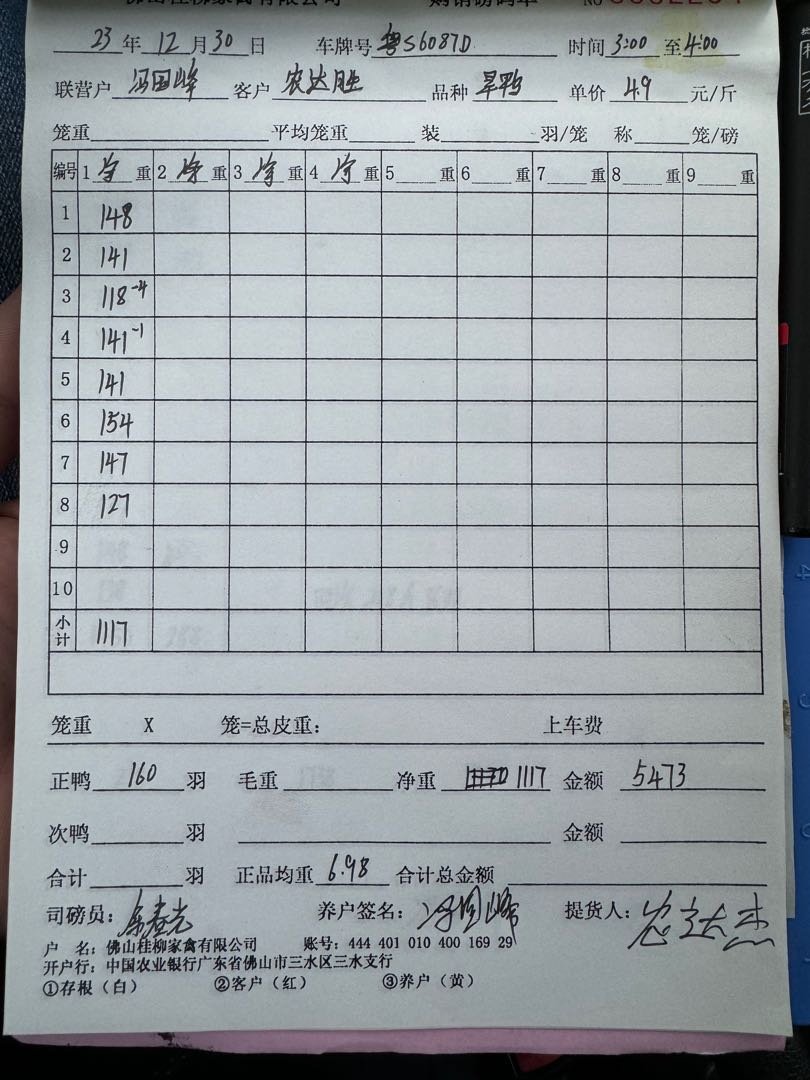 佛山桂柳家禽有限公司 购销磅码单 NO
23年12月30日 车牌号 粤S6087D 时间3:00至4:00
联营户 冯国峰 客户 农达胜 品种 旱鸭 单价 4.9 元/斤
笼重 平均笼重 装 羽/笼 称 笼/磅
编号 1净重 2净重 3净重 4净重 5 重 6 重 7 重 8 重 9 重
1 148
2 141
3 118-4
4 141-1
5 141
6 154
7 147
8 127
9
10
小计 1117
笼重 X 笼=总皮重: 上车费
正鸭 160 羽 毛重 净重 1117 金额 5473
次鸭 羽 金额
合计 羽 正品均重 6.98 合计总金额
司磅员: 养户签名: 冯国峰 提货人:
户 名: 佛山桂柳家禽有限公司 账号: 444 401 010 400 169 29
开户行: 中国农业银行广东省佛山市三水区三水支行
①存根（白） ②客户（红） ③养户（黄）